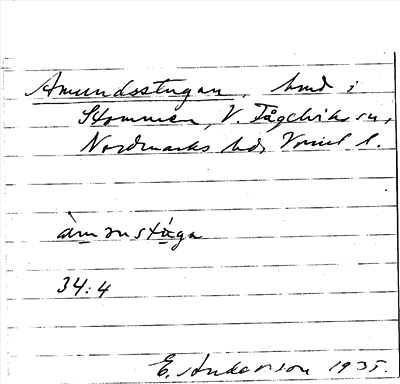 Amundsstugan, hmd i
Stommen, V. Fågelviks sn,
Nordmarks hd, Vrml l.
àmunstúga
34:4
E. Andersson 1935.